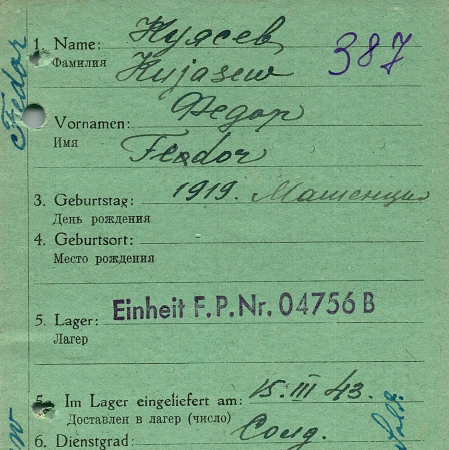 387
1. Name: Нуясев
Фамилия Kujasew
Федор
Vornamen:
Имя Feodor
3. Geburtstag: 1919. Машенцио
День рождения
4. Geburtsort:
Место рождения
5. Lager: Einheit F.P.Nr. 04756 B
Лагер
5. Im Lager eingeliefert am: 15.III 43.
Доставлен в лагер (число)
6. Dienstgrad: Солд.
Fedor
Sold.